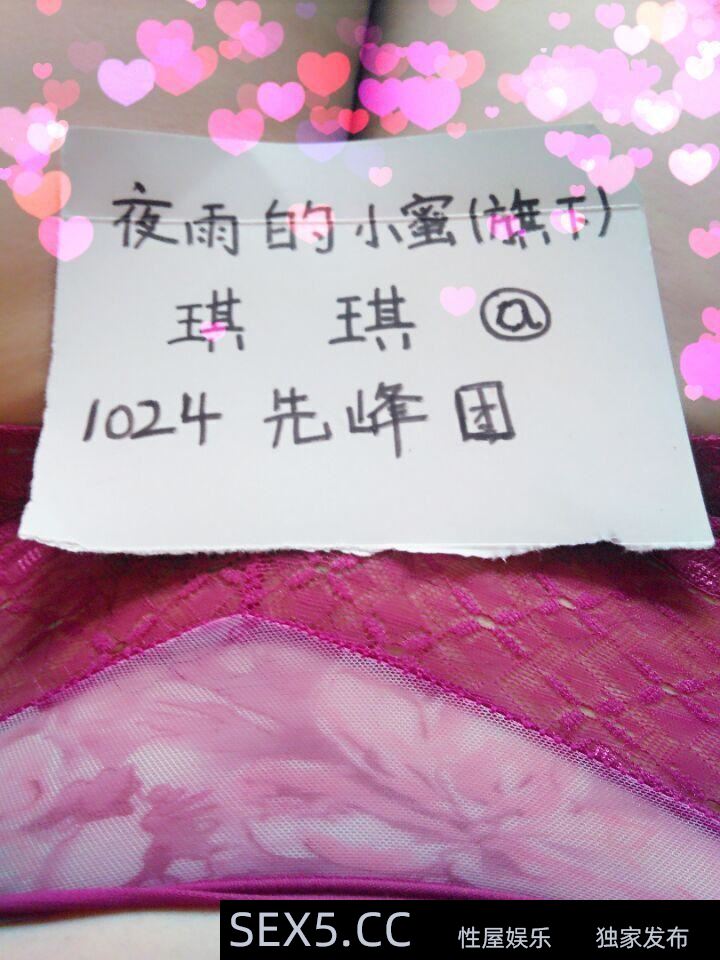 夜雨的小蜜(旗下)
琪琪@
1024先峰团
SEX5.CC 性屋娱乐 独家发布